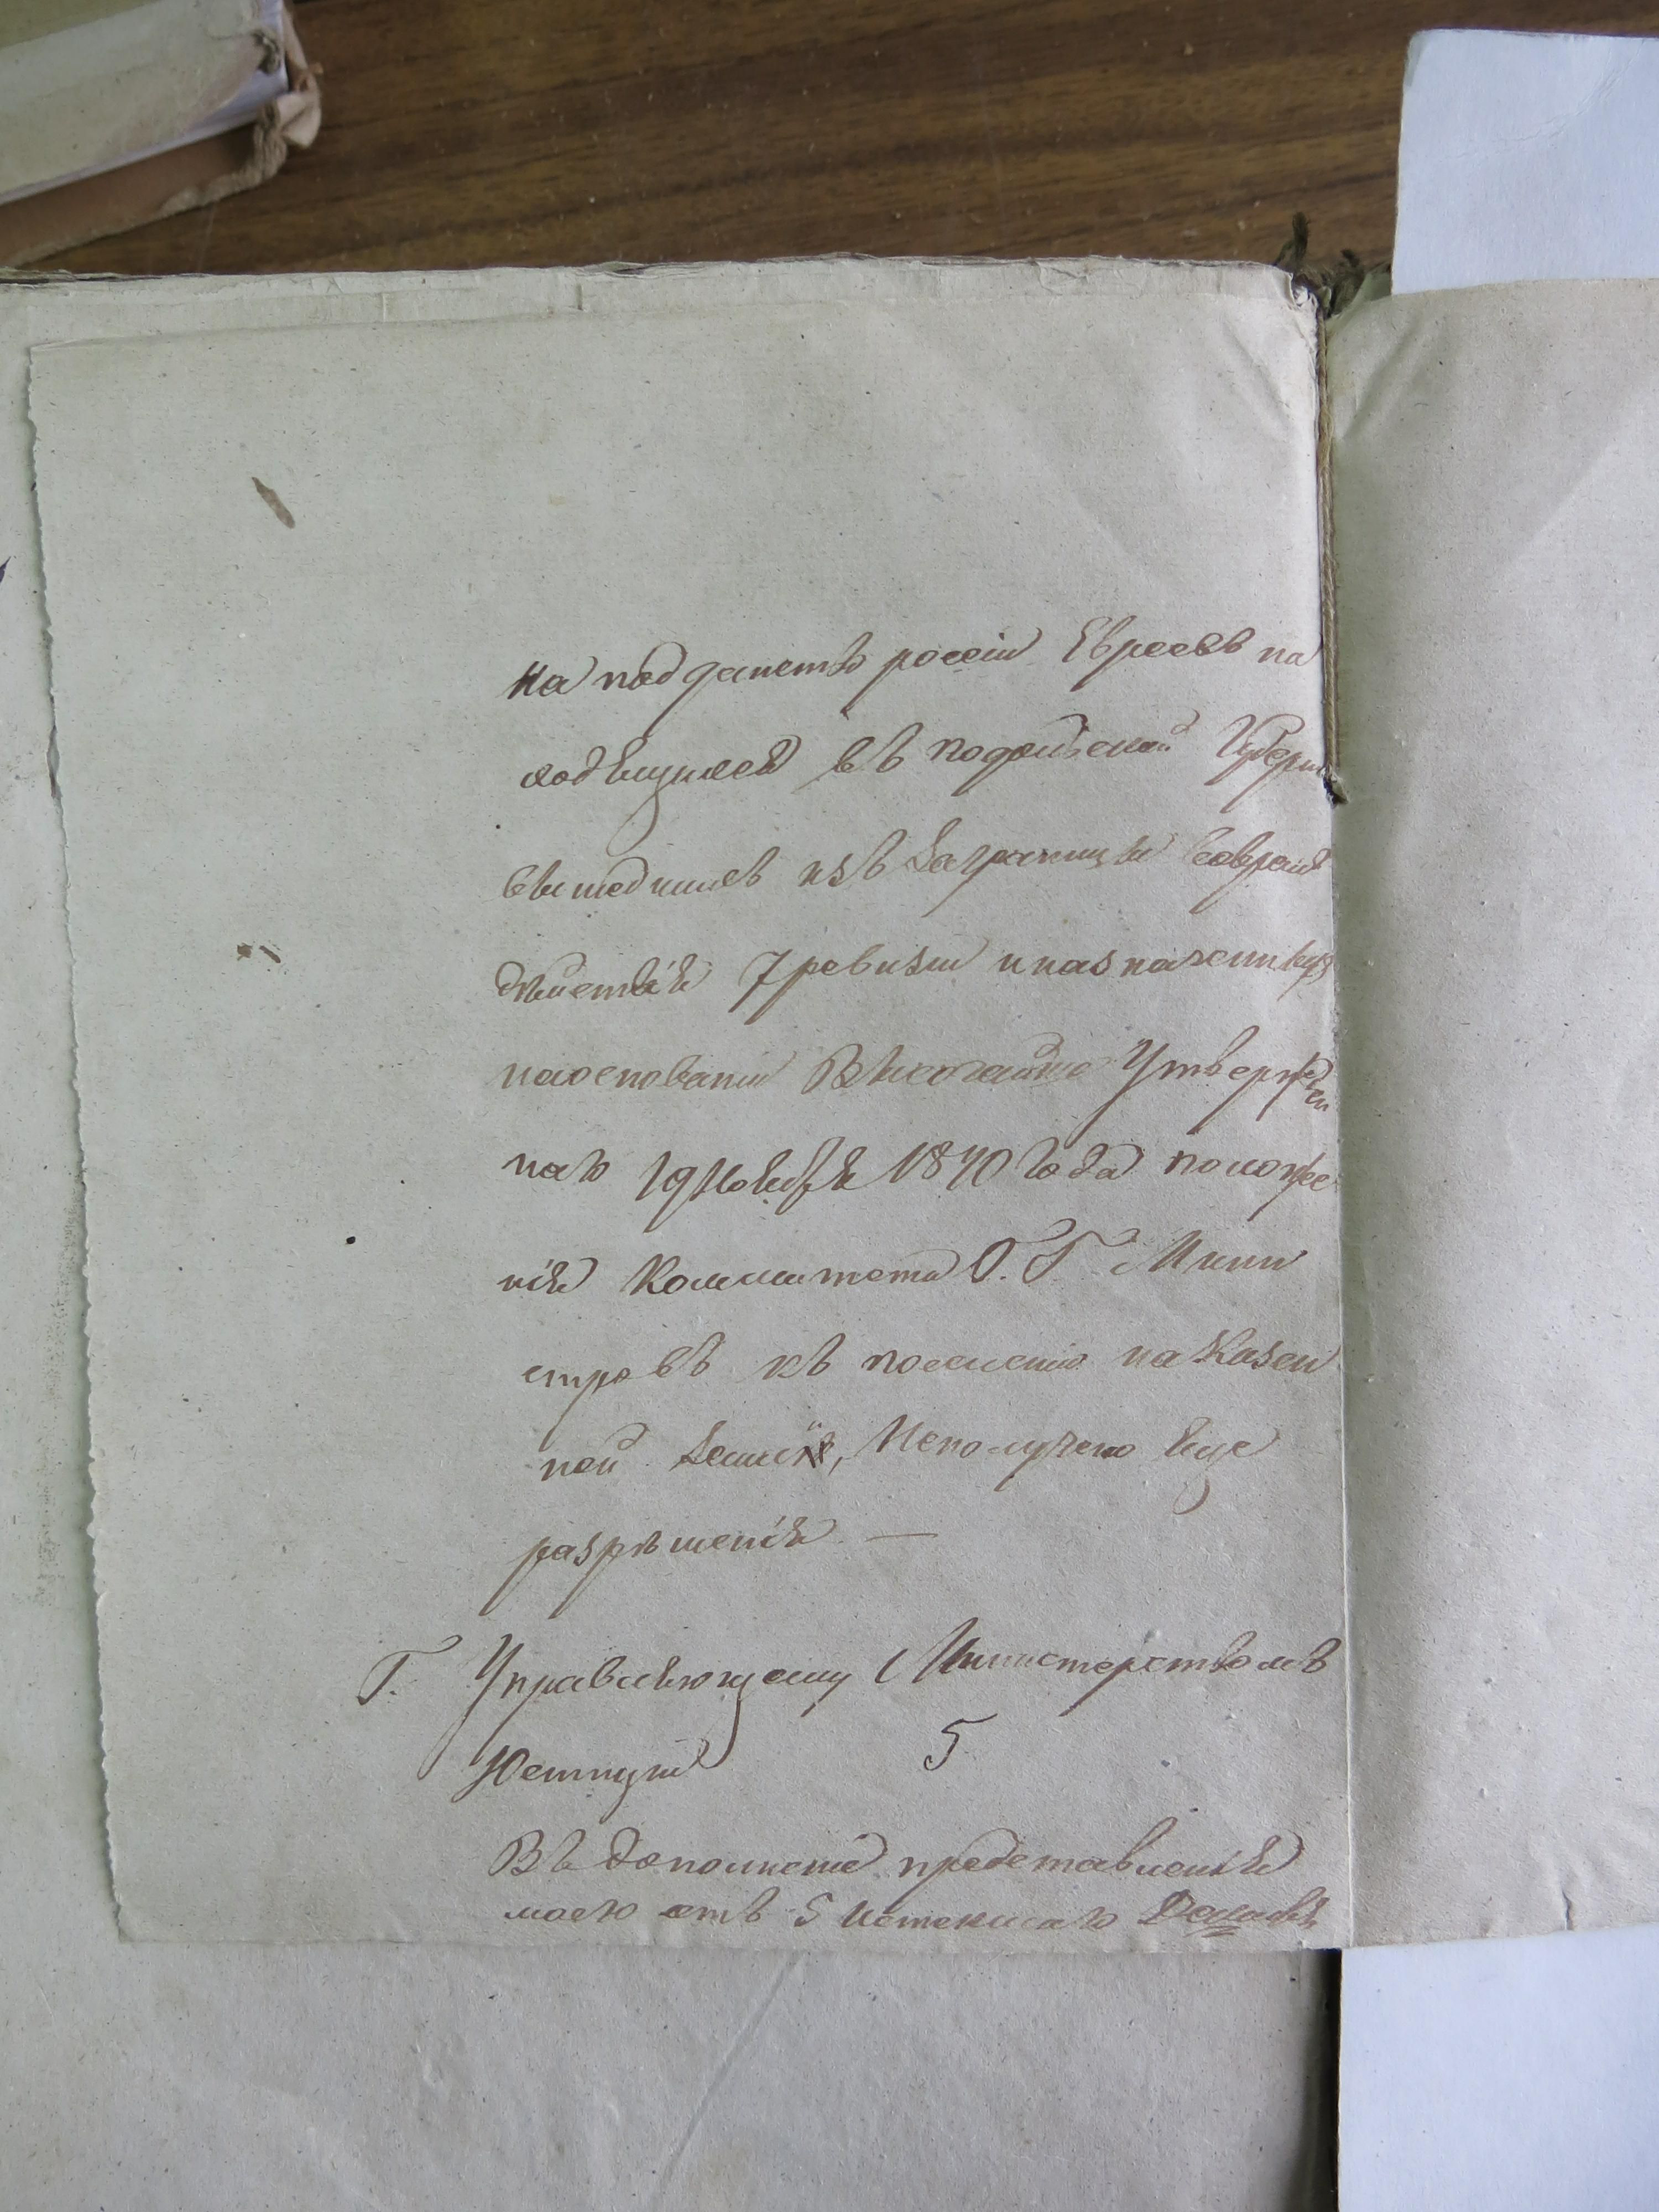 на подданство россіи Евреевъ на
ходящихся въ подольской Губерн
вышедшихъ изъ Заграницы
дѣйствія 7 ревизіи и назначенныхъ
наоснованіи Высочайше Утвержден
наго 19 Ноября 1840 года положе
нія Коммитета Г. Г. Мини
стровъ къ поселенію на Казен
ной Земли, Неполучено Еще
разрѣшенія —
Г. Управляющему Министерствомъ
Юстиціи 5
Въ дополненіе представленія
моего отъ 5 истекшаго Декабря